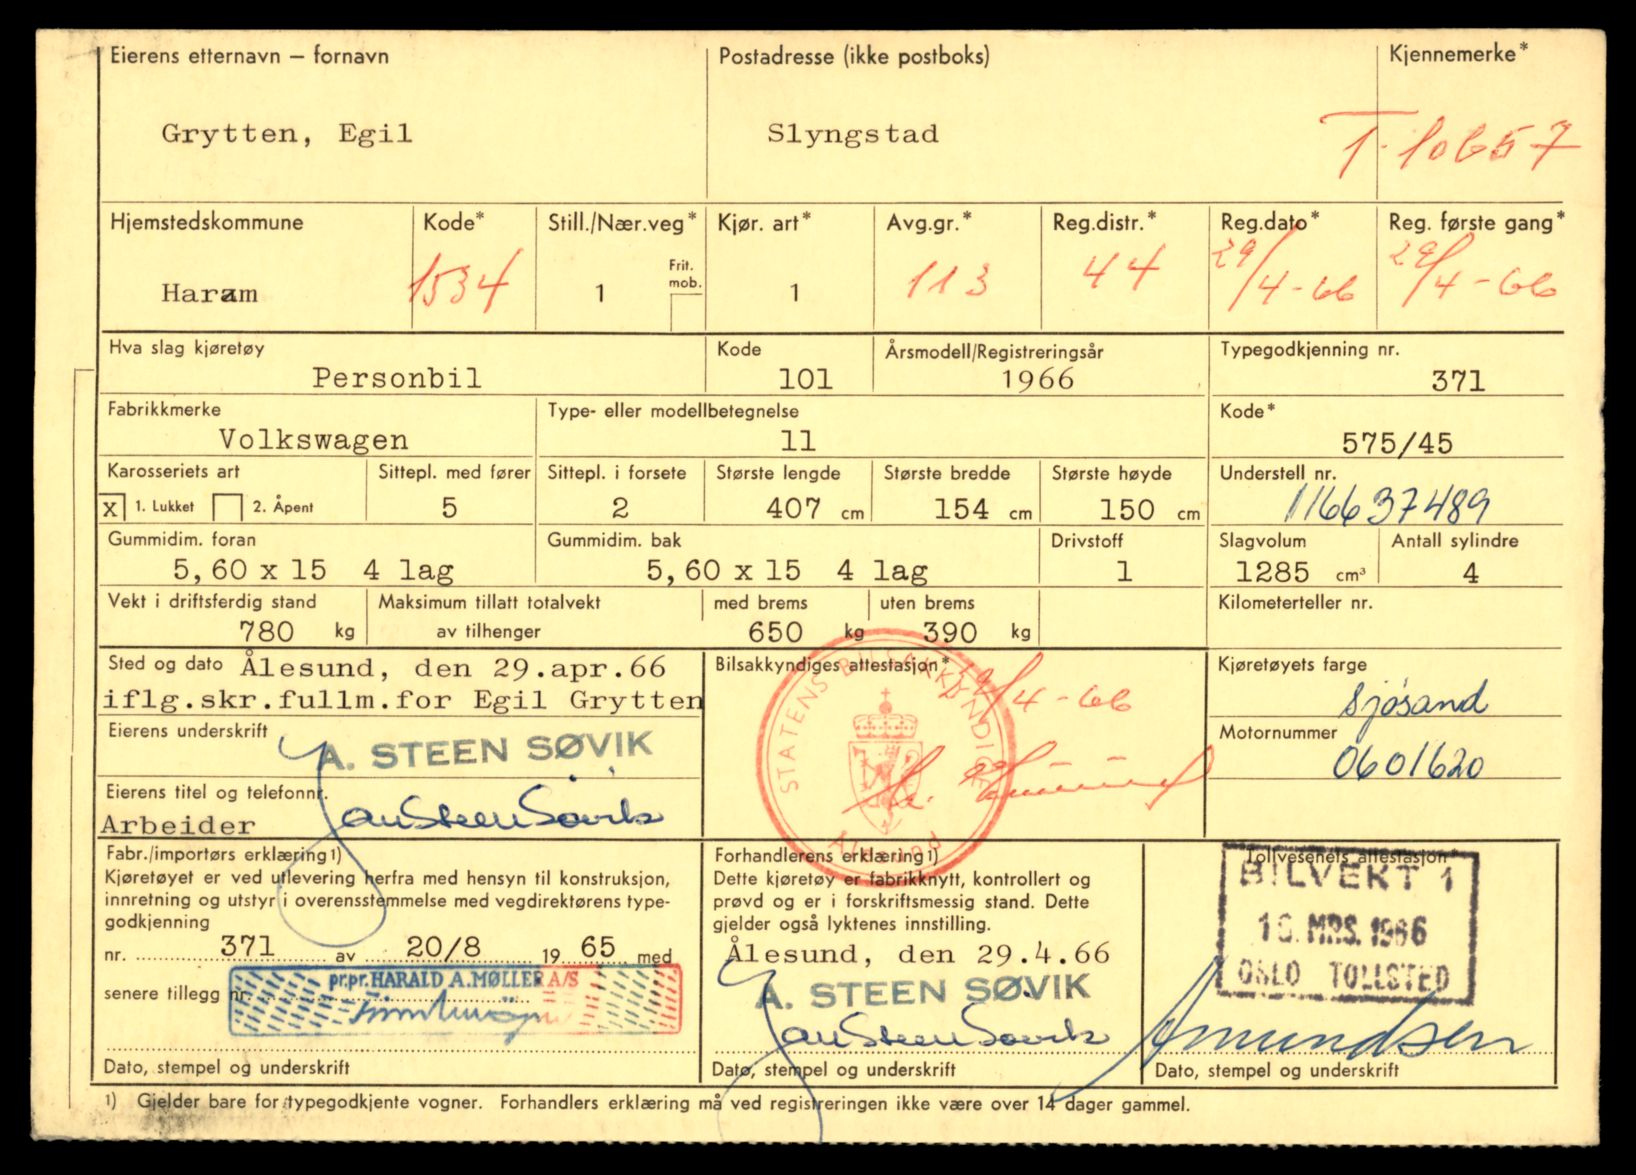 Eierens etternavn – fornavn
Grytten, Egil
Postadresse (ikke postboks)
Slyngstad
Kjennemerke*
T-10657
Hjemstedskommune
Haram
Kode*
1534
Still./Nær.veg*
1
Frit.
mob.
Kjør. art*
1
Avg.gr.*
113
Reg.distr.*
44
Reg.dato*
29/4-66
Reg. første gang*
29/4-66
Hva slag kjøretøy
Personbil
Kode
101
Årsmodell/Registreringsår
1966
Typegodkjenning nr.
371
Fabrikkmerke
Volkswagen
Type- eller modellbetegnelse
11
Kode*
575/45
Karosseriets art
X 1. Lukket 2. Åpent
Sittepl. med fører
5
Sittepl. i forsete
2
Største lengde
407 cm
Største bredde
154 cm
Største høyde
150 cm
Understell nr.
116637489
Gummidim. foran
5,60 x 15 4 lag
Gummidim. bak
5,60 x 15 4 lag
Drivstoff
1
Slagvolum
1285 cm³
Antall sylindre
4
Vekt i driftsferdig stand
780 kg
Maksimum tillatt totalvekt
av tilhenger
med brems
650 kg
uten brems
390 kg
Kilometerteller nr.
Sted og dato Ålesund, den 29.apr.66
iflg.skr.fullm.for Egil Grytten
Eierens underskrift
A. STEEN SØVIK
Eierens titel og telefonnr.
Arbeider
Bilsakkyndiges attestasjon*
29/4-66
STATENS BILSAKKYNDIGE
Ålesund
Kjøretøyets farge
Sjøsand
Motornummer
0601620
Fabr./importørs erklæring1)
Kjøretøyet er ved utlevering herfra med hensyn til konstruksjon,
innretning og utstyr i overensstemmelse med vegdirektørens type-
godkjenning
nr. 371 av 20/8 19 65 med
senere tillegg nr.
pr.pr. HARALD A. MØLLER A/S
Dato, stempel og underskrift
Forhandlerens erklæring1)
Dette kjøretøy er fabrikknytt, kontrollert og
prøvd og er i forskriftsmessig stand. Dette
gjelder også lyktenes innstilling.
Ålesund, den 29.4.66
A. STEEN SØVIK
Dato, stempel og underskrift
Tollvesenets attestasjon*
BILVEKT 1
16. MRS. 1966
OSLO TOLLSTED
Amundsen
Dato, stempel og underskrift
1) Gjelder bare for typegodkjente vogner. Forhandlers erklæring må ved registreringen ikke være over 14 dager gammel.